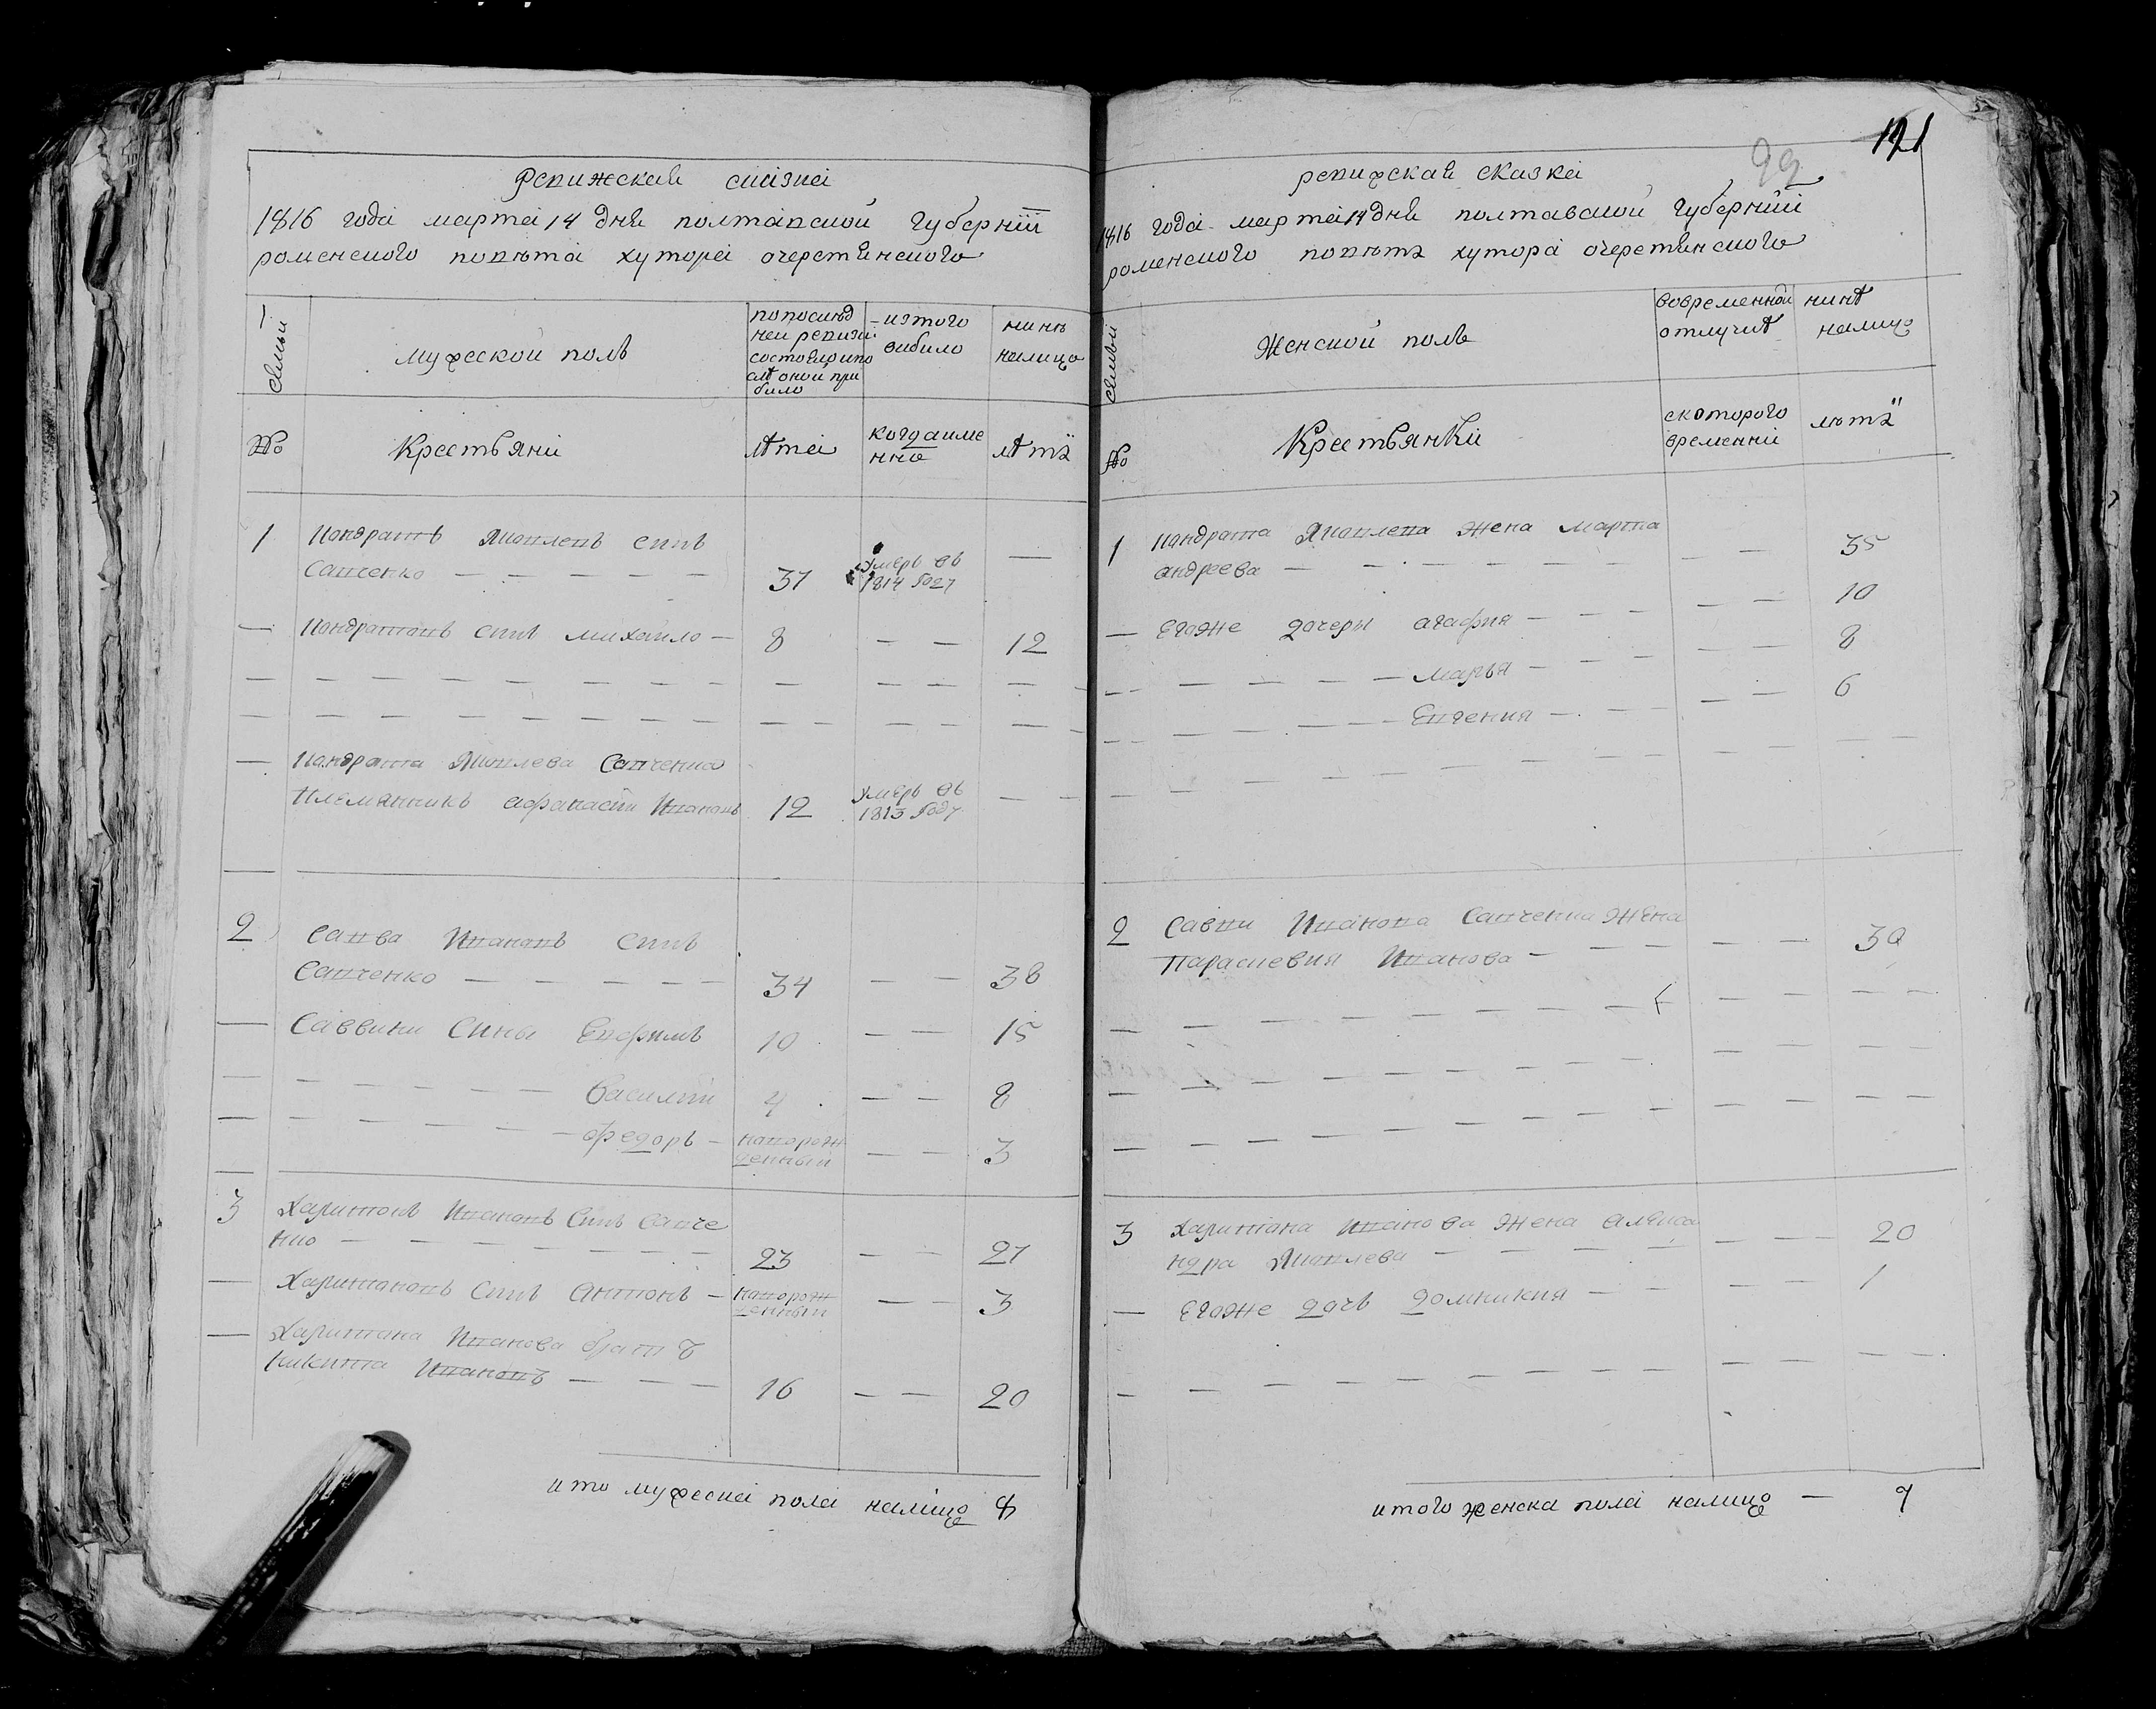 121
99
Ревижская сказка
1816 года марта 14 дня полтавской губернїи
роменского повѣта хутора очеретянского
семьи
мужеской полъ
попослѣд
ней ревизїи
состоялоипо
слѣ оной при
било
изтого
вибило
нинѣ
налицо
№
Крестьяни
лѣта
когдаиме
нно
лѣтъ
1 Кондратъ Яковлевъ синъ
Савченко — — — — — 37 умеръ въ —
1814 году
— Кондратовъ синъ михайло — 8 — — 12
— Кондрата Яковлева Савченка
племянникъ афанасїй Ивановъ 12 умеръ въ — —
1813 году
2 Савва Ивановъ синъ
Савченко — — — — — 34 — — 38
— Саввини Сины Евфимъ 10 — — 15
— — — — — — Василїй 4 — — 8
— — — — — — федоръ — новорож — — 3
денный
3 Харитонъ Ивановъ Синъ Савче
нко — — — — — — — 23 — — 27
— Харитоновъ Синъ Антонъ — новорож — — 3
денный
— Харитона Иванова братъ
никита Ивановъ — — — 16 — — 20
ито мужеска пола налицо 8
ревижская сказка
1816 года марта 14 дня полтавской губернїи
роменского повѣтъ хутора очеретянского
семьи
Женской полъ
вовременной
отлучкѣ
нинѣ
налицо
№
Крестьянки
скоторого
времени
лѣтъ
1 Кондрата Яковлева жена марта
андреева — — — — — — — — 35
— Егоже дочеры агафия — — — — — 10
— — — — — марья — — — — — 8
— — — — — Евгения — — — — — 6
2 Савви Иванова Савченка жена
Параскевия Иванова — — — — — 30
3 Харитона Иванова жена алекса
ндра Яковлева — — — — — — 20
— Егоже дочь домникия — — — — 1
итого женска пола налицо — 7